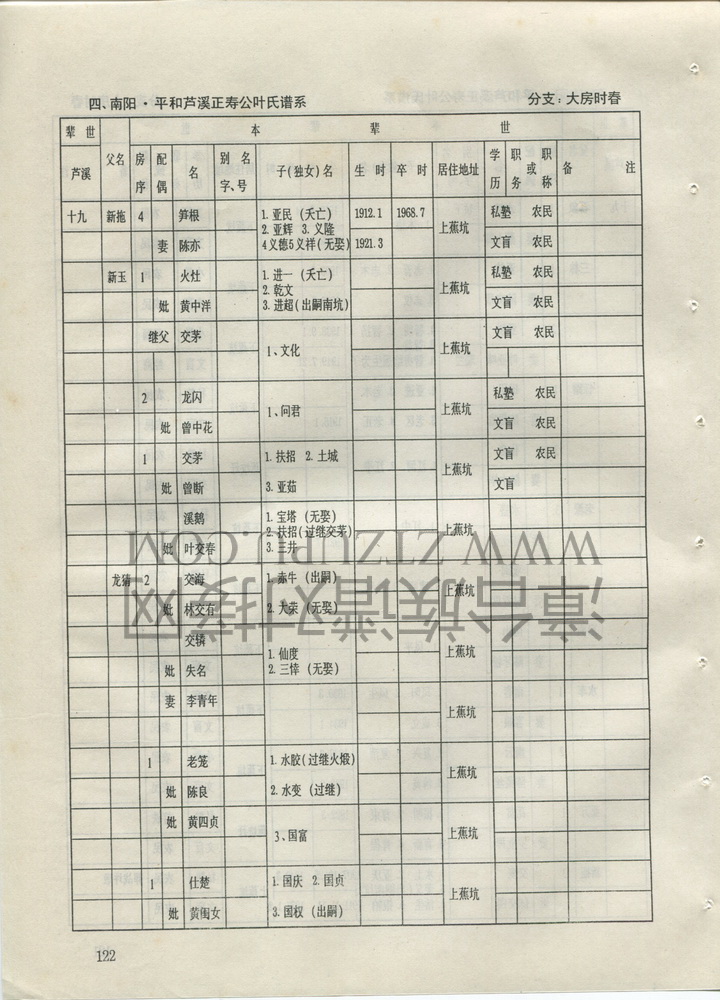 四、南阳·平和芦溪正寿公叶氏谱系 分支：大房时春
辈世 本 辈 世
芦溪 父名 房序 配偶 名 别名字、号 子(独女)名 生时 卒时 居住地址 学历 职务或职称 备注
十九 新拖 4 笋根 1.亚民（夭亡） 1912.1 1968.7 上蕉坑 私塾 农民
2.亚辉 3.义隆
妻 陈亦 4义德5义祥(无娶) 1921.3 文盲 农民
新玉 1 火灶 1.进一（夭亡） 上蕉坑 私塾 农民
2.乾文
妣 黄中洋 3.进超(出嗣南坑) 文盲 农民
继父 交茅 1、文化 上蕉坑 文盲 农民
2 龙闪 1、问君 上蕉坑 私塾 农民
妣 曾中花 文盲 农民
1 交茅 1.扶招 2.土城 上蕉坑 文盲 农民
妣 曾断 3.亚茹 文盲
溪鹅 1.宝塔（无娶） 上蕉坑
2.扶招(过继交茅)
妣 叶交春 3.三井
龙猜 2 交海 1.赤牛（出嗣） 上蕉坑
妣 林交右 2.大荣（无娶）
交辚 1.仙度 上蕉坑
妣 失名 2.三悻（无娶）
妻 李青年 上蕉坑
1 老笼 1.水胶(过继火煅) 上蕉坑
妣 陈良 2.水变（过继）
妣 黄四贞 3、国富 上蕉坑
1 仕楚 1.国庆 2.国贞 上蕉坑
妣 黄闺女 3.国权（出嗣）
122
WWW.ZTZUPU.COM
漳台族谱对接网